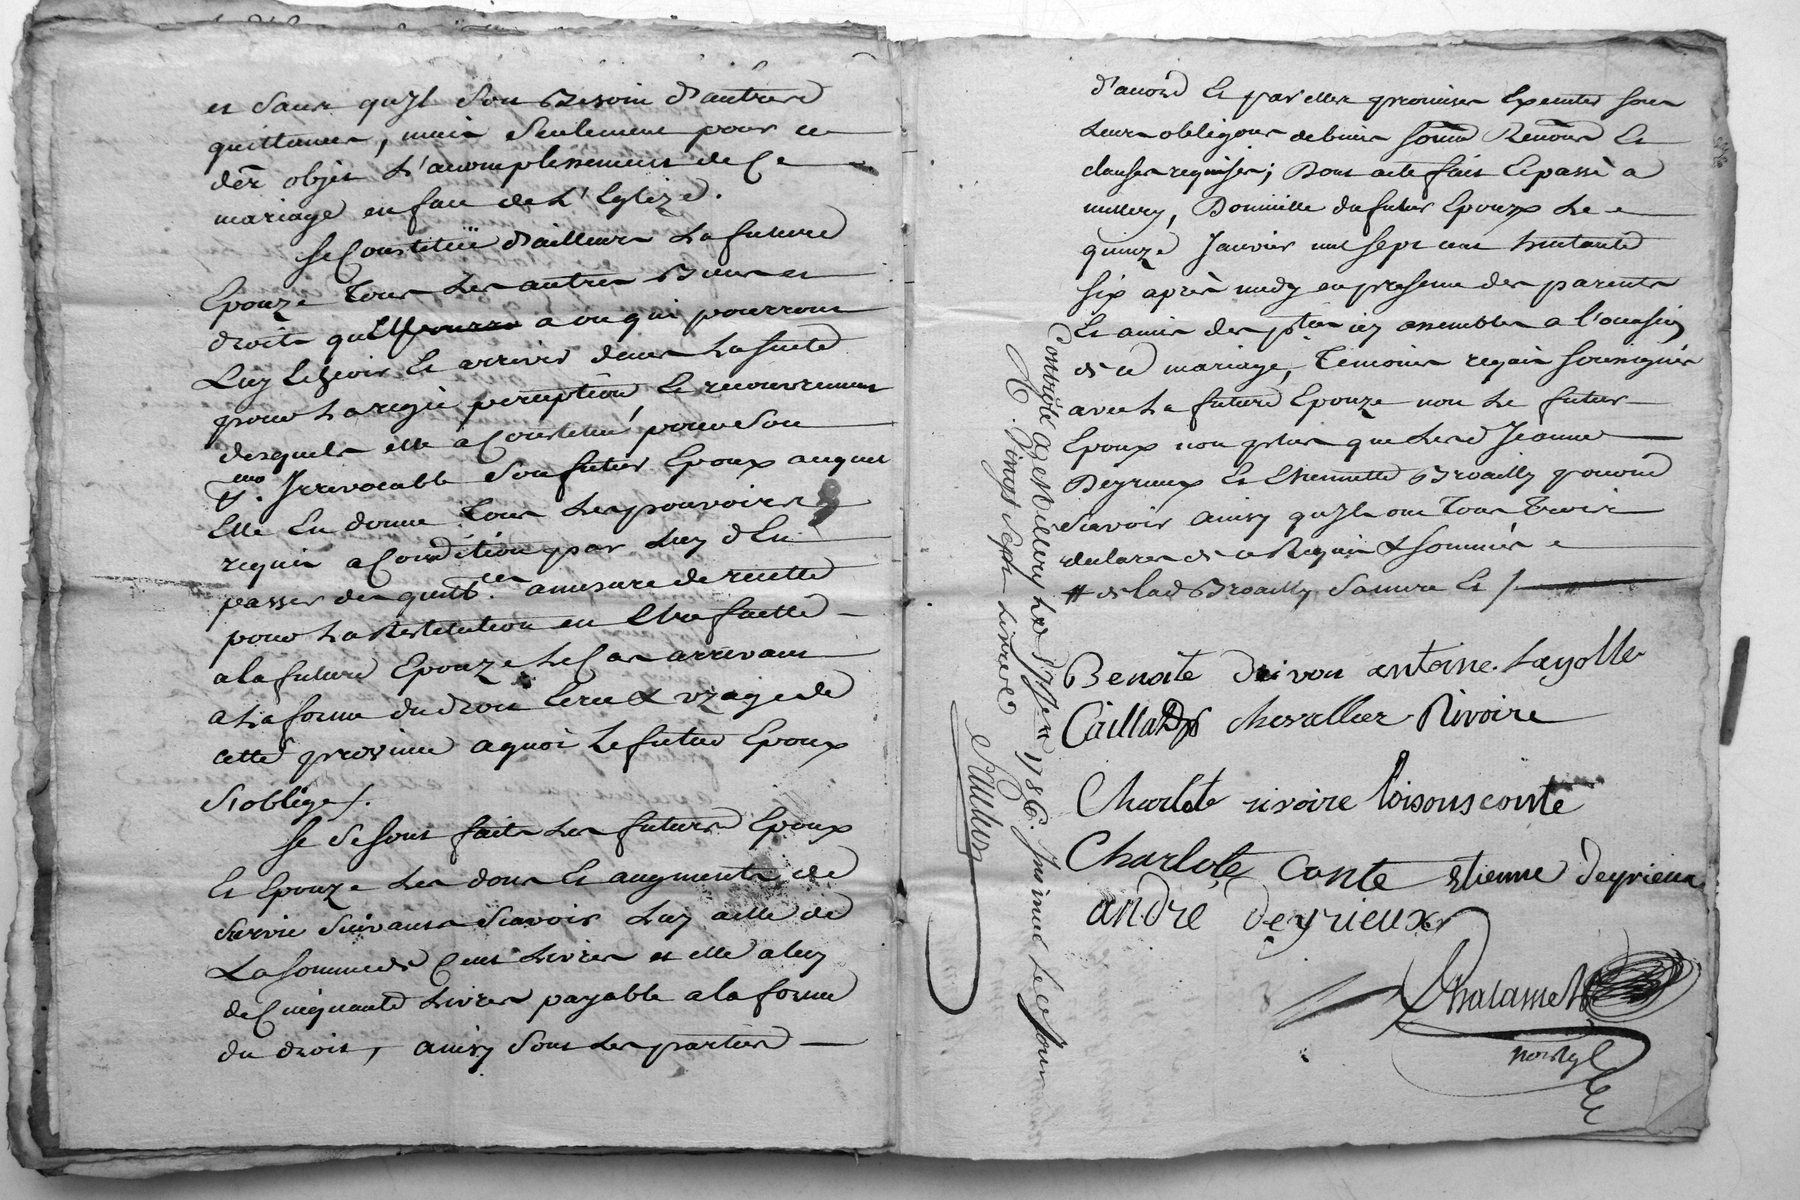 et sans qu'il soit Besoin d'autres
quittances, mais seulement pour ce
der objet L'acomplissement de Ce
mariage en face de L'Eglize.
Se Constitüe d'ailleurs La future
Epouze Tous Les autres Biens et
droits qu'Elle a ou qui pourront
Luy Echeoir Et arriver dans La suitte
pour La regie perception Et recouvrement
desquels elle a Constitué pour son
Irrevocable son futur Epoux auquel
Elle En donne Tous Les pouvoirs
requis a Condition par Luy d'En
passer des quittces amesure de recette
pour La Restitution en Etre faitte
a la future Epouze Le Cas arrivant
a La forme du droit Ecrit & uzage de
cette province a quoi Le futur Epoux
s'oblige /.
Se se sont faits Les futurs Epoux
Et Epouze Les dons Et augments de
survie suivants sçavoir Luy a elle de
La somme de Cent Livres et elle a luy
de Cinquante Livres payable a la forme
du droit, ainsy sont Les parties
d'acord Et par elles promises Executer sous
Leurs obligons de biens soumon Renonon Et
clauses requises; Dont acte fait Et passé a
millery, Domicille du futur Epoux Le
quinze Janvier mil sept cent huitante
six après midy en presence des parents
Et amis des pties icy assemblés a l'occasion
de ce mariage, Temoins requis soussignés
avec La future Epouze non Le futur
Epoux non plus que Led Jeanne
Deyrieux Et Etiennette Broailly pour ne
sçavoir ainsy qu'ils ont Tous Trois
declaré de ce Requis & sommés
# de lad Broailly sa mere Et /
Benoite Drivon antoine Layolle
Caillard chevallier Rivoire
Charlote rivoire loison conte
Charlote Conte etienne Deyrieux
andré Deyrieux
Chalamel
nore
Controlé a Millery Le 1786. Insinué Le Jour
R. Vingt sept Livres